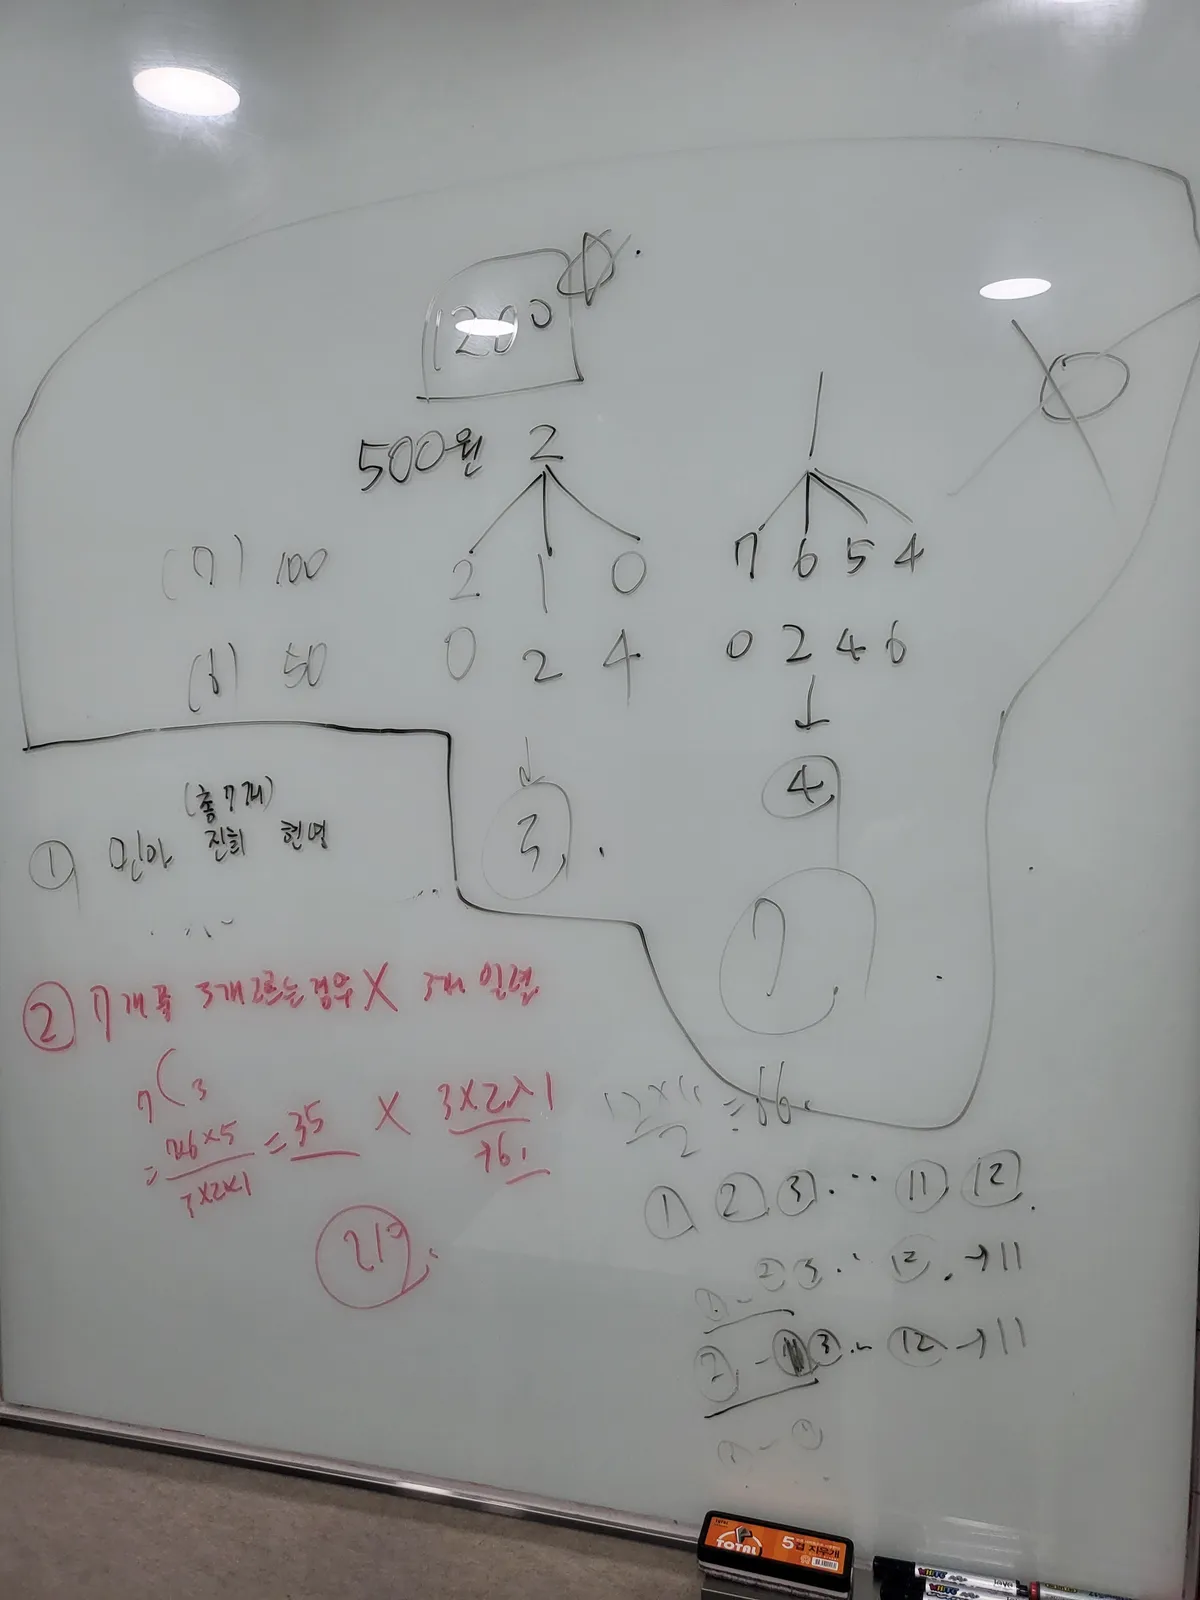 1200
500원 2 1
(7) 100 2 1 0 7 6 5 4
(6) 50 0 2 4 0 2 4 6
3 4
7
(총 7개)
① 민아 진희 현영
② 7개 중 3개 고르는 경우 X 3개 일렬
7C3
= 7×6×5 / 3×2×1 = 35 × 3×2×1
=6
210
12×11 / 2 = 66
① ② ③ ... ⑪ ⑫
② ③ ... ⑫ → 11
② - ③ .. ⑫ → 11
TOTAL
5겹 지우개